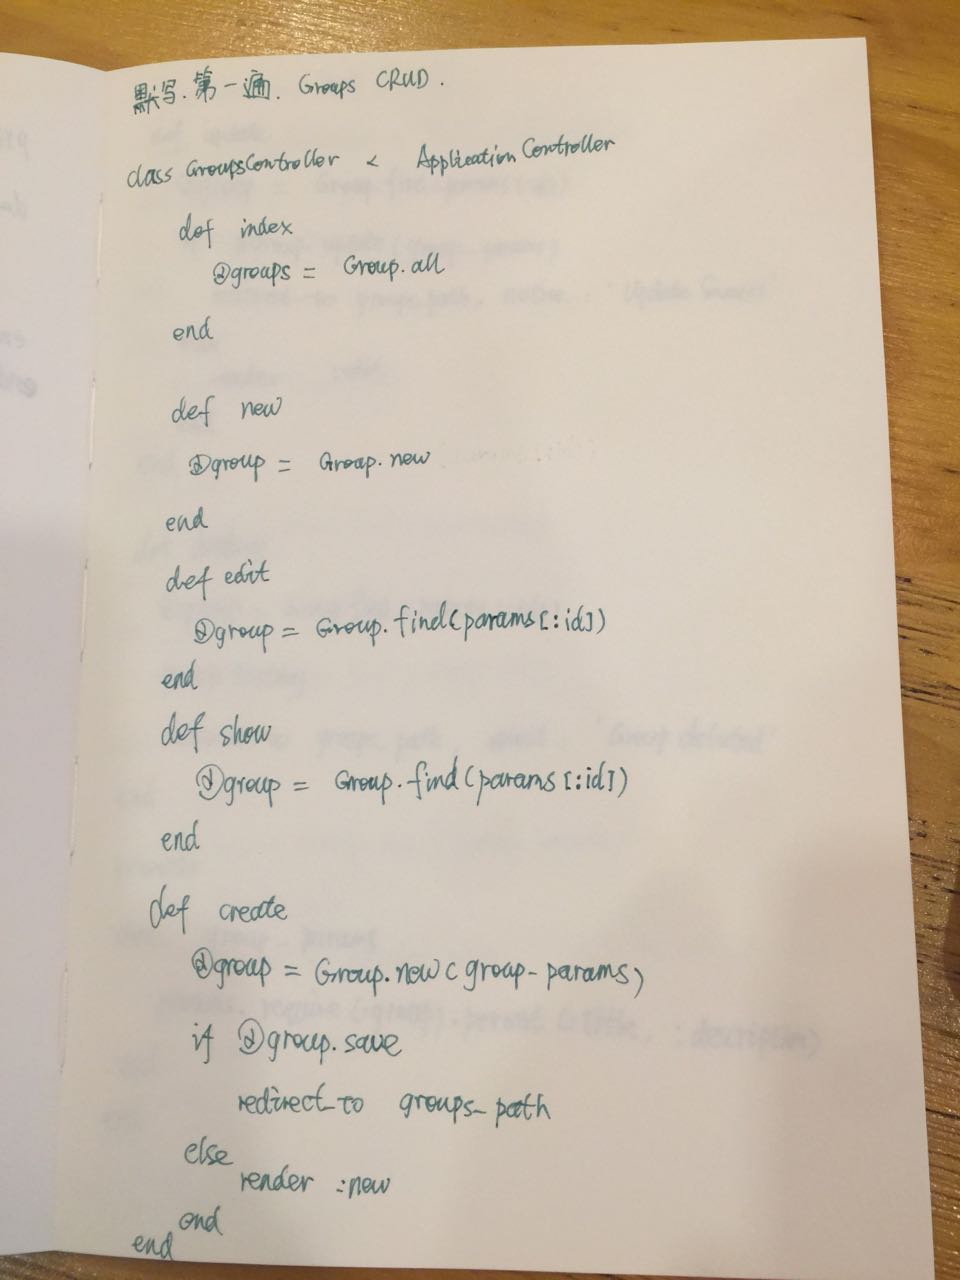 默写.第一遍. Groups CRUD.
class GroupsController < ApplicationController
def index
@groups = Group.all
end
def new
@group = Group.new
end
def edit
@group = Group.find(params[:id])
end
def show
@group = Group.find(params[:id])
end
def create
@group = Group.new(group_params)
if @group.save
redirect_to groups_path
else
render :new
end
end